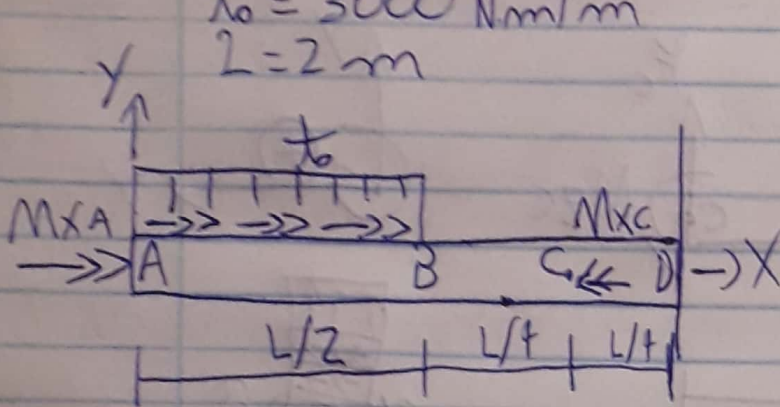 t₀ = 3000 N.m/m
L = 2 m
Y
t₀
MXA
MXC
A B C D X
L/2 L/4 L/4